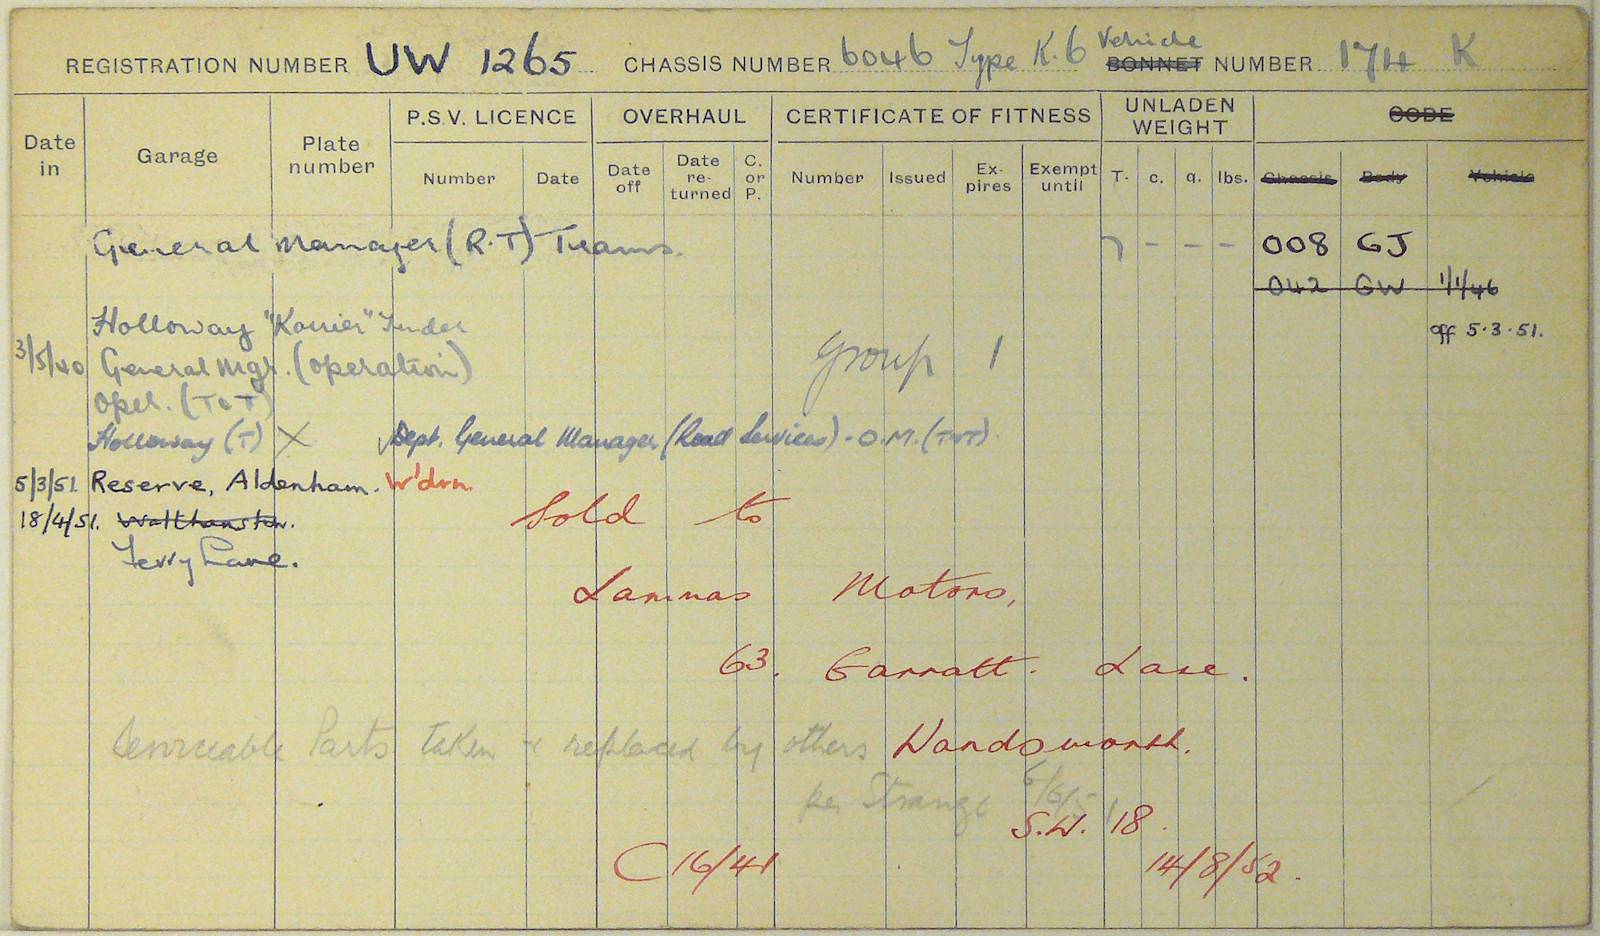 REGISTRATION NUMBER UW 1265 CHASSIS NUMBER 6046 Type K.6 Vehicle BONNET NUMBER 174 K
Date in Garage Plate number P.S.V. LICENCE OVERHAUL CERTIFICATE OF FITNESS UNLADEN WEIGHT CODE
Number Date Date off Date re-turned C. or P. Number Issued Ex-pires Exempt until T. c. q. lbs. Chassis Body Vehicle
General Manager (R.T) Trams. 7 - - - 008 GJ
042 GW 1/1/46
Holloway "Karrier" Tender off 5.3.51.
3/5/40 General Mgr. (Operation) Group 1
Oper. (T&T)
Holloway (T) X Dept. General Manager (Road Services) - O.M. (T&T).
5/3/51. Reserve, Aldenham. W'drn.
18/4/51. Walthamstow. Sold to
Ferry Lane.
Lammas Motors,
63. Garratt. Lane.
Serviceable Parts taken & replaced by others Wandsworth.
per Strange 6/6/51
S.W. 18.
C 16/41 14/8/52.